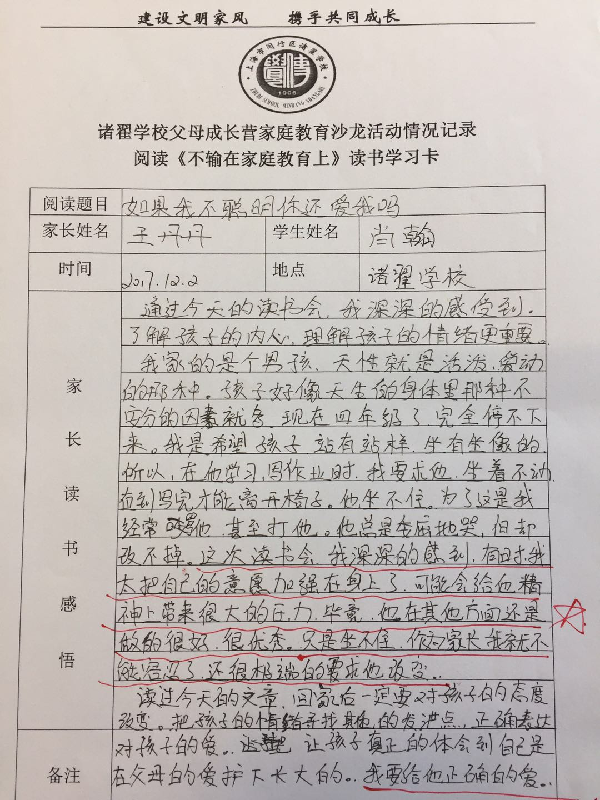 建设文明家风 携手共同成长
上海市闵行区诸翟学校
1905
诸翟学校父母成长营家庭教育沙龙活动情况记录
阅读《不输在家庭教育上》读书学习卡
阅读题目 如果我不聪明你还爱我吗
家长姓名 王丹丹 学生姓名 肖翰
时间 2017.12.2 地点 诸翟学校
家长读书感悟
通过今天的读书会，我深深的感受到，
了解孩子的内心，理解孩子的情绪更重要。
我家的是个男孩，天性就是活泼，爱动
的那种。孩子好像天生的身体里那种不
安分的因素就多，现在四年级了完全停不下
来。我是希望孩子站有站样，坐有坐像的，
所以，在他学习，写作业时，我要求他，坐着不动
直到写完才能离开椅子。他坐不住。为了这是我
经常骂他，甚至打他。他总是委屈地哭，但却
改不掉。这次读书会，我深深的感到，有时我
太把自己的意愿加强在身上了，可能会给他精
神上带来很大的压力，毕竟，他在其他方面还是
做的很好，很优秀。只是坐不住，作为家长我就不
能容忍了，还很极端的要求他改变。
读过今天的文章，回家后一定要对孩子的态度
改变。把孩子的情绪寻找具体的发泄点，正确表达
备注
对孩子的爱。让孩子真正的体会到自己是
在父母的爱护下长大的。我要给他正确的爱。